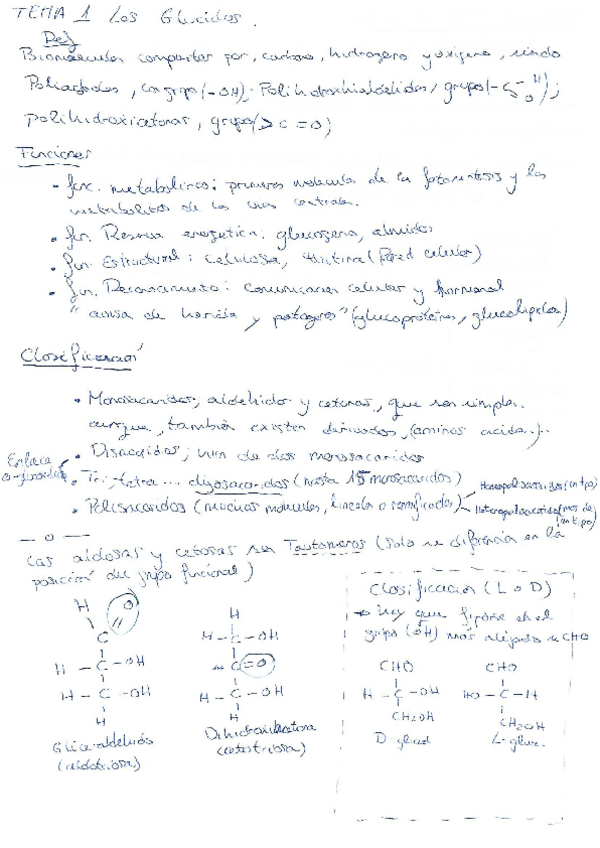 TEMA 1 Los Glucidos.
Def
Biomoleculas compuestas por, carbono, hidrogeno y oxigeno, siendo
Polialcoholes, con grupo (-OH); Polihidroxialdehidos, grupos (-C-H O);
polihidroxicetonas, grupo (>C=O)
Funciones
- func. metabolico: primeras molecula de la fotosintesis y los
metabolitos de las vias centrales.
• fun. Reserva energetica: glucogeno, almidon
• fun. Estructural: celulosa, quitina (Pared celular)
• fun. Reconocimiento: comunicacion celular y hormonal
"avisa de herida y patogenos" (glucoproteinas, glucolipidos)
Clasificacion
• Monosacaridos; aldehidos y cetonas, que son simples.
aunque, también existen derivados, (aminos acidos..).
• Disacaridos; union de dos monosacaridos
Enlace
o-glucosidico
• Tri, tetra ... oligosacaridos (hasta 15 monosacaridos)
• Polisacaridos (muchas moleculas, lineales o ramificados)
Homopolisacaridos (un tipo)
Heteropolisacaridos (mas de
un tipo)
— o —
Las aldosas y cetosas son Tautomeros (solo se diferencia en la
posición del grupo funcional)
H O
C
H - C - OH
H - C - OH
H
Gliceraldehido
(aldotriosa)
H
H - C - OH
C = O
H - C - OH
H
Dihidroxiacetona
(cetotriosa)
Clasificacion (L o D)
→ Hay que fijarse en el
grupo (OH) más alejado de CHO
CHO
H - C - OH
CH2OH
D-glud
CHO
HO - C - H
CH2OH
L-gluce.